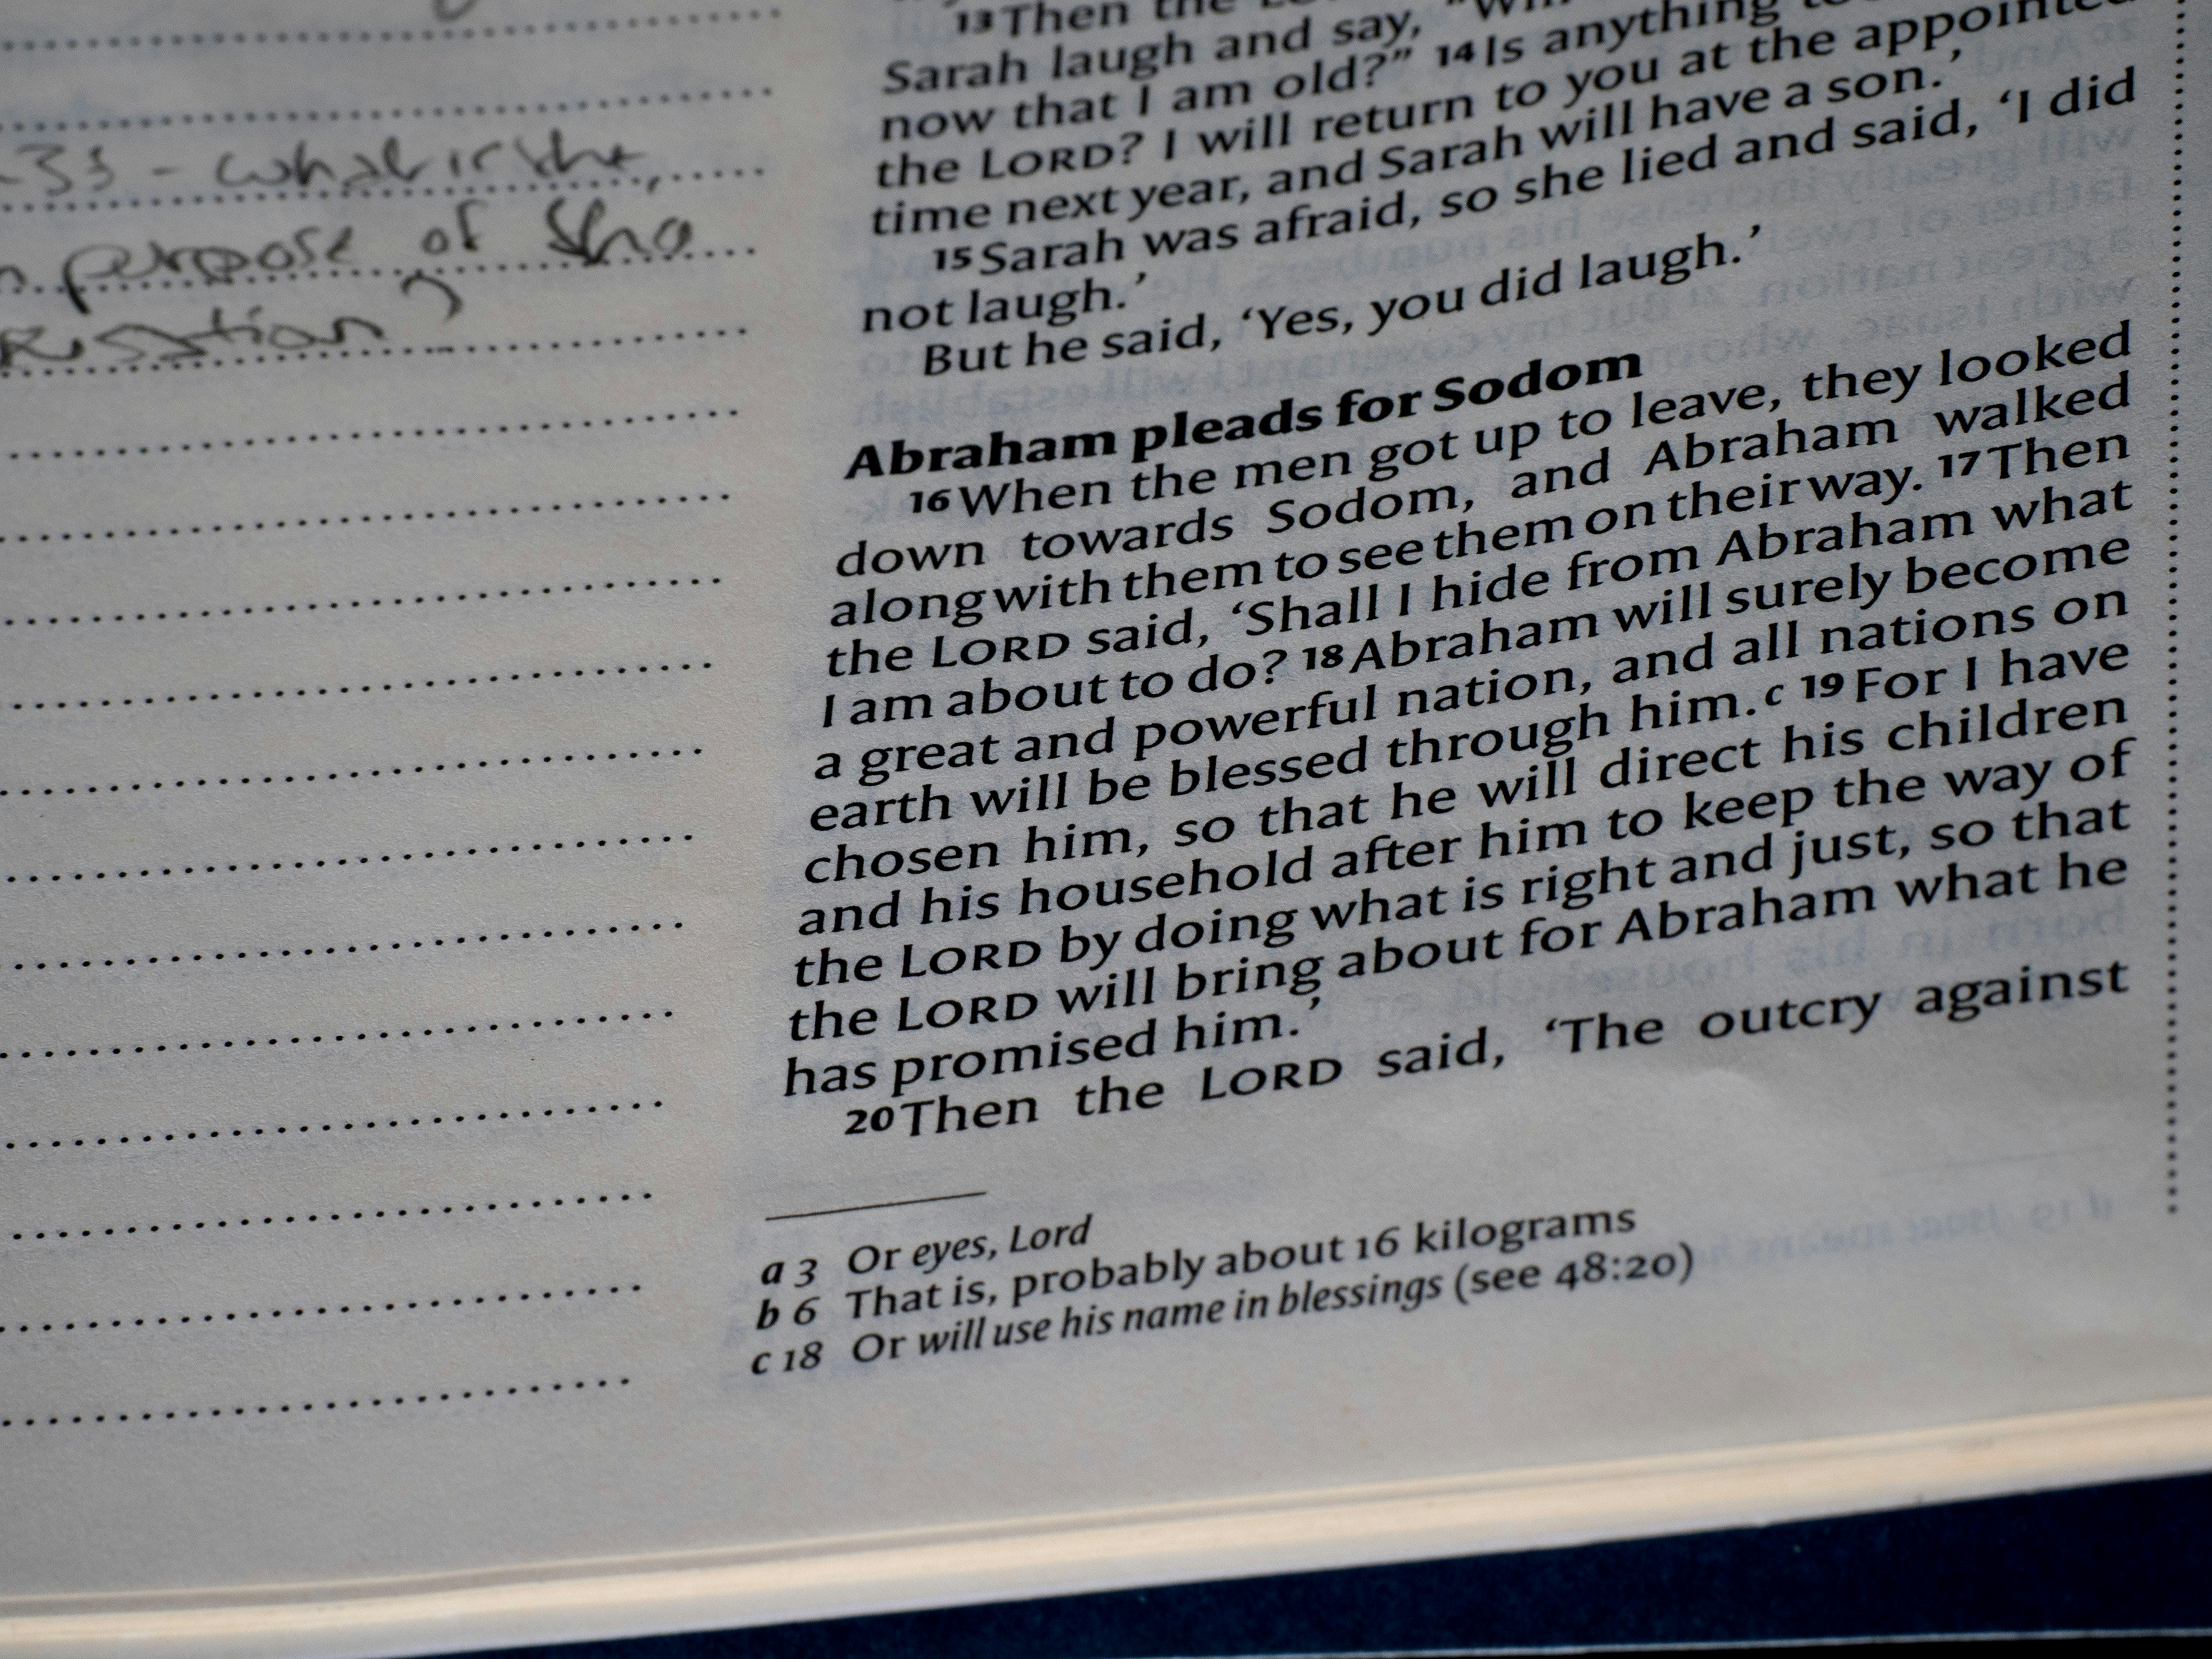 33 - what is the
purpose of
13 Then the
Sarah laugh and say,
now that I am old?” 14 Is anything
the LORD? I will return to you at the appointed
time next year, and Sarah will have a son.’
15 Sarah was afraid, so she lied and said, ‘I did
not laugh.’
But he said, ‘Yes, you did laugh.’
Abraham pleads for Sodom
16 When the men got up to leave, they looked
down towards Sodom, and Abraham walked
along with them to see them on their way. 17 Then
the LORD said, ‘Shall I hide from Abraham what
I am about to do? 18 Abraham will surely become
a great and powerful nation, and all nations on
earth will be blessed through him.c 19 For I have
chosen him, so that he will direct his children
and his household after him to keep the way of
the LORD by doing what is right and just, so that
the LORD will bring about for Abraham what he
has promised him.’
20 Then the LORD said, ‘The outcry against
a 3 Or eyes, Lord
b 6 That is, probably about 16 kilograms
c 18 Or will use his name in blessings (see 48:20)